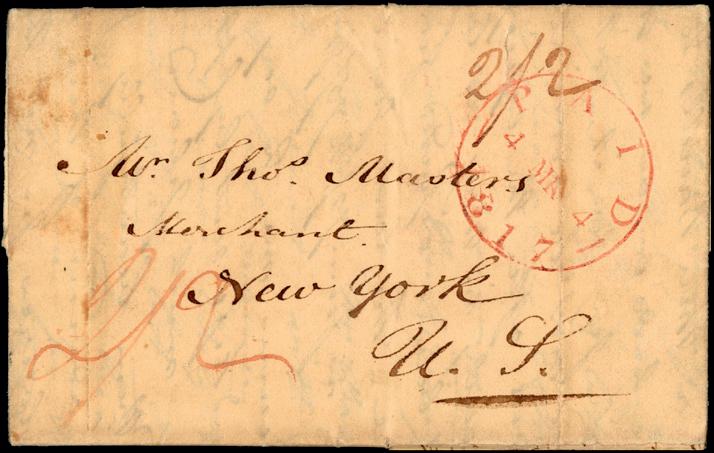 2/2
PAID
4 MR 4
1817
Mr. Thos. Masters
Merchant.
New York
U. S.
2/2